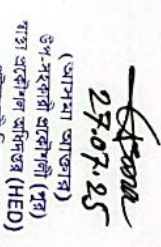 27.07.25
(আসমা আক্তার)
উপ-সহকারী প্রকৌশলী (পুর)
স্বাস্থ্য প্রকৌশল অধিদপ্তর (HED)